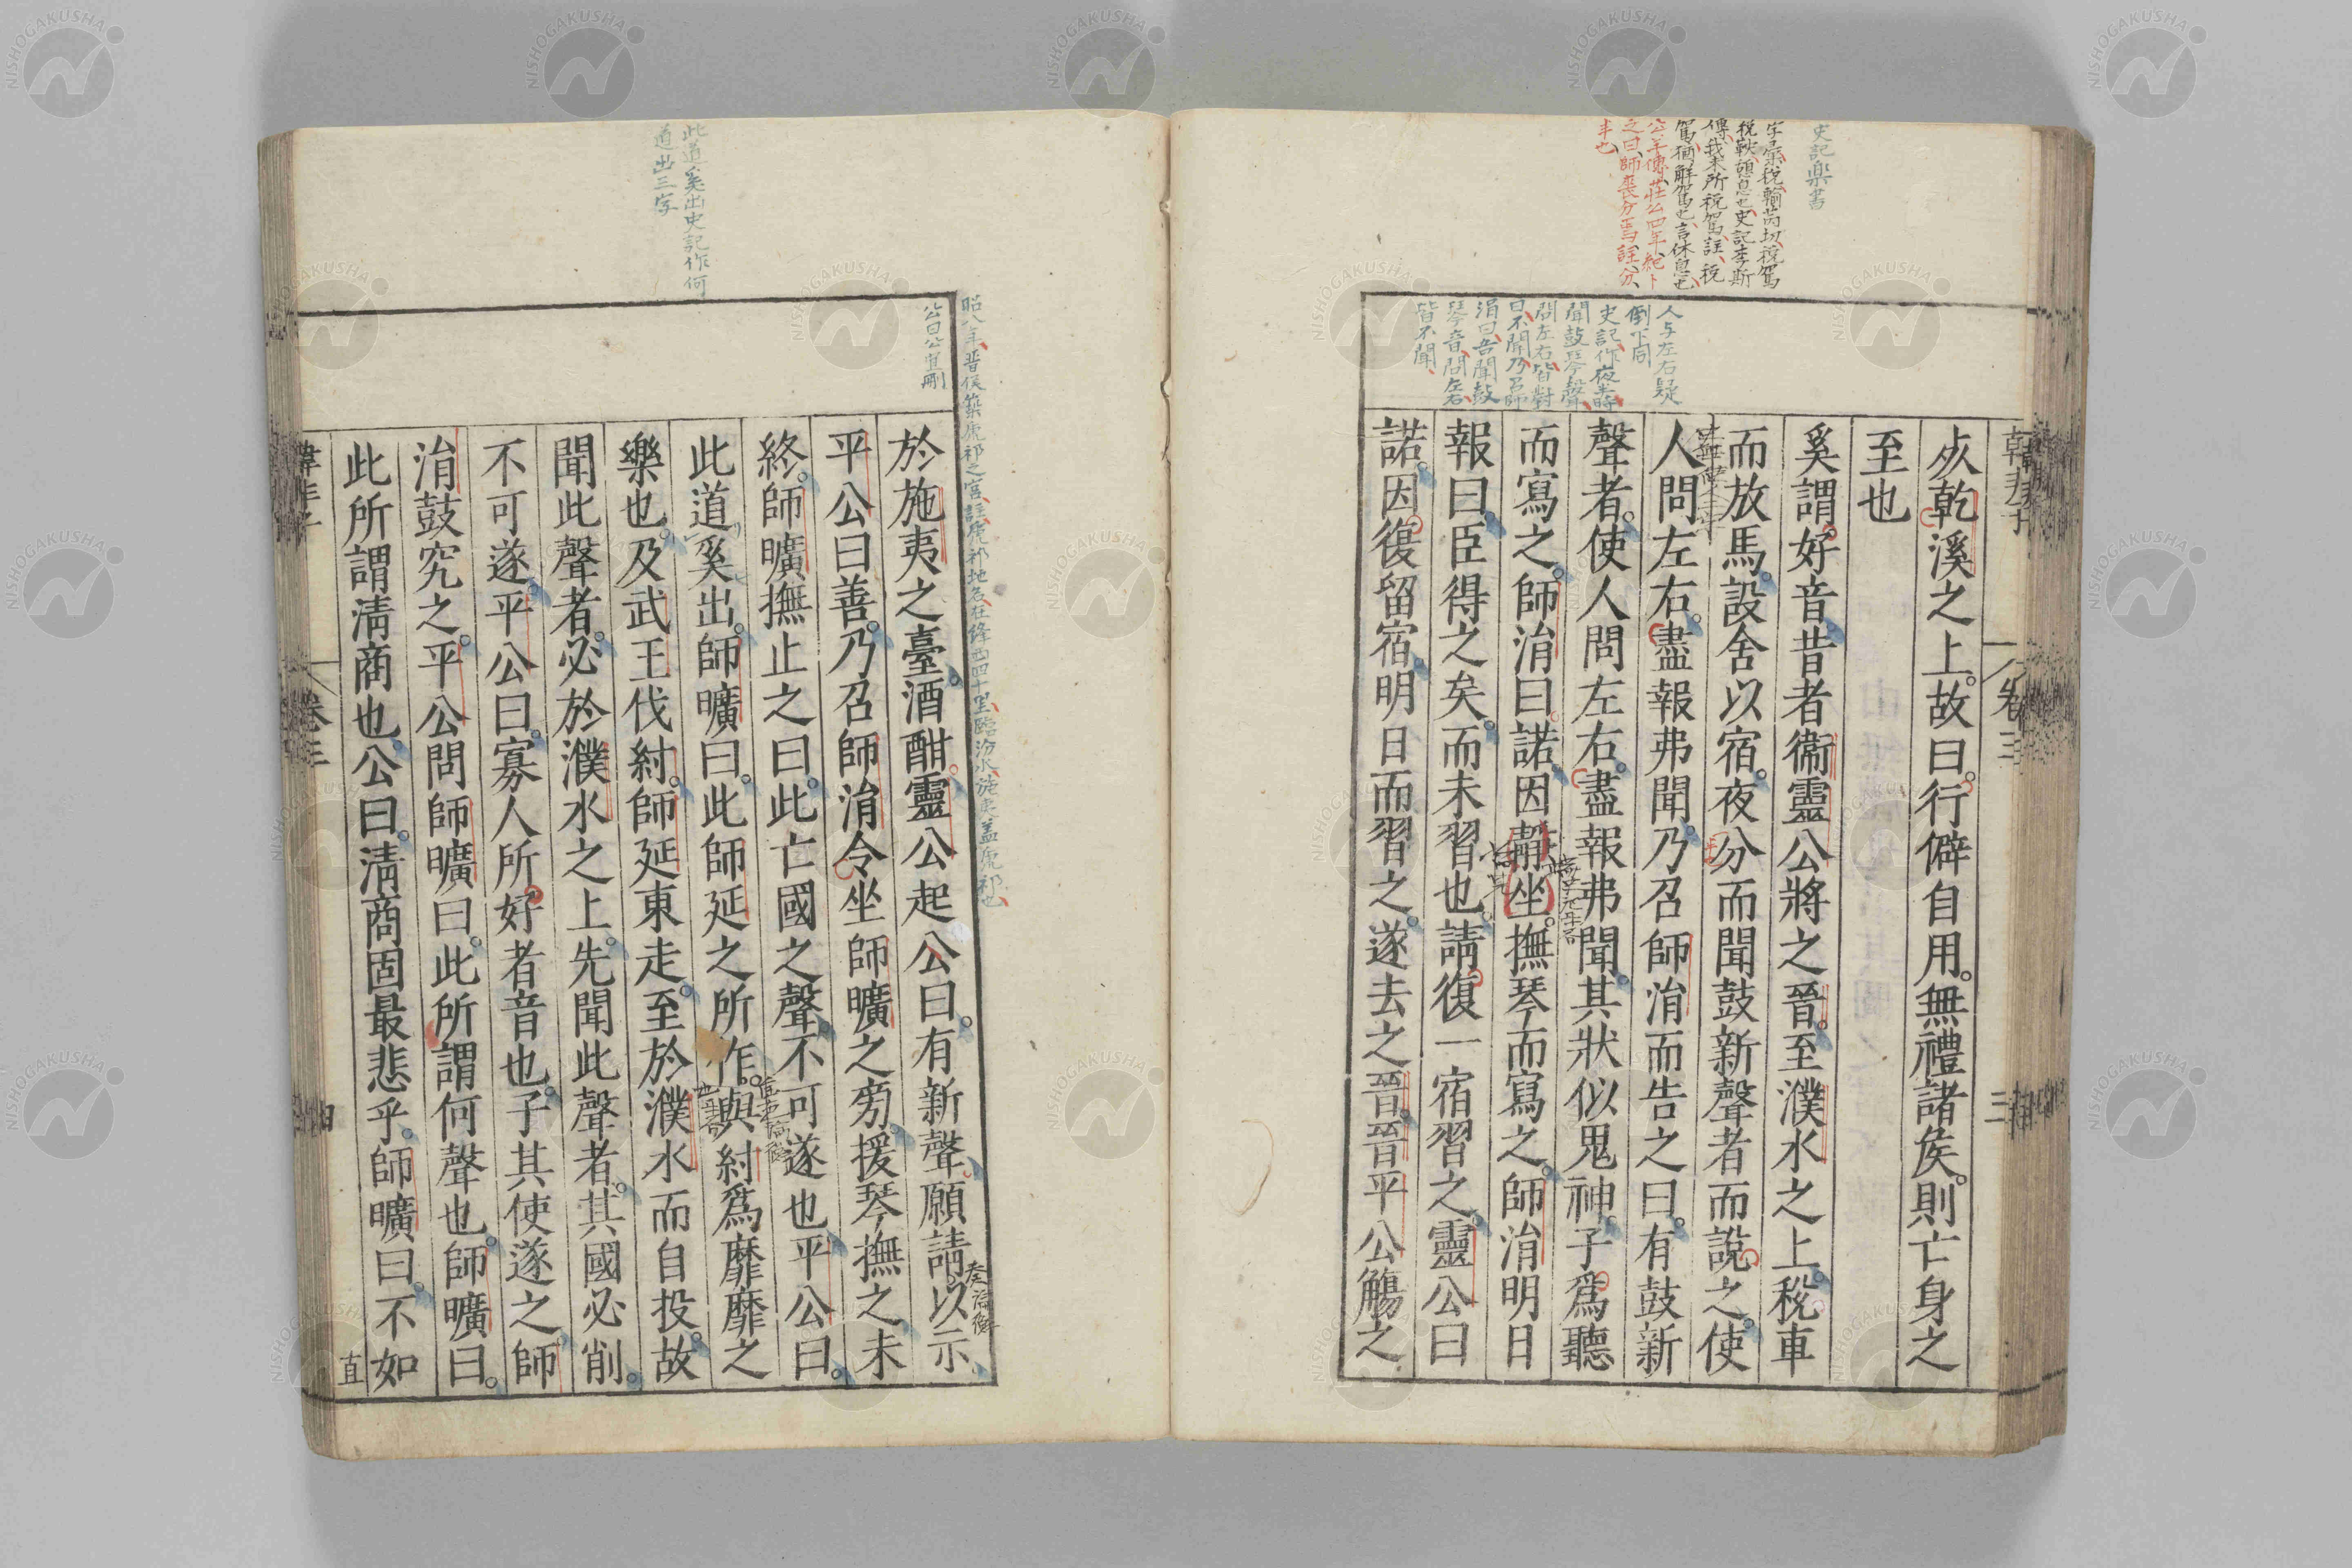 史記樂書
字彙稅輸芮切稅駕
稅軟頭息也史記李斯
傳我未所稅駕註稅
駕猶解駕也言休息也
公羊傳莊公四年紀卜
之曰師喪分焉註分
半也
人与左右疑
倒下同
史記作夜半時
聞鼓琴聲
問左右皆對
曰不聞乃召師
涓曰吾聞鼓
琴音問左右
皆不聞
韓非子
卷三
三
死乾溪之上。故曰。行僻自用。無禮諸侯。則亡身之
至也
奚謂好音。昔者衞靈公將之晉。至濮水之上。稅車
而放馬。設舍以宿。夜分而聞鼓新聲者而說之。使
人問左右。盡報弗聞。乃召師涓而告之曰。有鼓新
聲者。使人問左右。盡報弗聞。其狀似鬼神。子爲聽
而寫之。師涓曰。諾。因靜坐。撫琴而寫之。師涓明日
報曰。臣得之矣。而未習也。請復一宿習之。靈公曰
諾。因復留宿。明日而習之。遂去之晉。晉平公觴之
昭八年晉侯築虒祁之宮註虒祁地名在絳西四十里臨汾水施夷蓋虒祁也
公曰公宜刪
此道奚出史記作何
道出三字
於施夷之臺。酒酣。靈公起公曰。有新聲。願請以示
奏論衡
平公曰善。乃召師涓。令坐師曠之旁。援琴撫之。未
終。師曠撫止之曰。此亡國之聲。不可遂也。平公曰。
此道奚出。師曠曰。此師延之所作。與紂爲靡靡之
樂也。及武王伐紂。師延東走。至於濮水而自投。故
聞此聲者。必於濮水之上。先聞此聲者。其國必削。
不可遂。平公曰。寡人所好者音也。子其使遂之。師
涓鼓究之。平公問師曠曰。此所謂何聲也。師曠曰。
此所謂淸商也。公曰。淸商固最悲乎。師曠曰。不如
直
韓非子
卷三
四